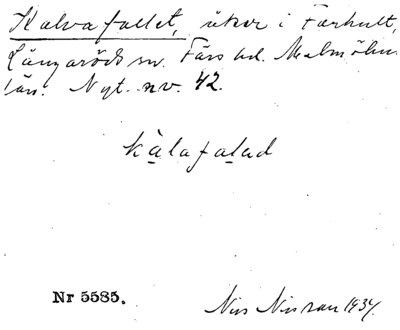 Kalvafallet, åker i Farhult,
Långaröds sn. Färs hd. Malmöhus
län. Nyt. nr. 42.
kalafalad
Nr 5585.
Nils Nilsson 1934.